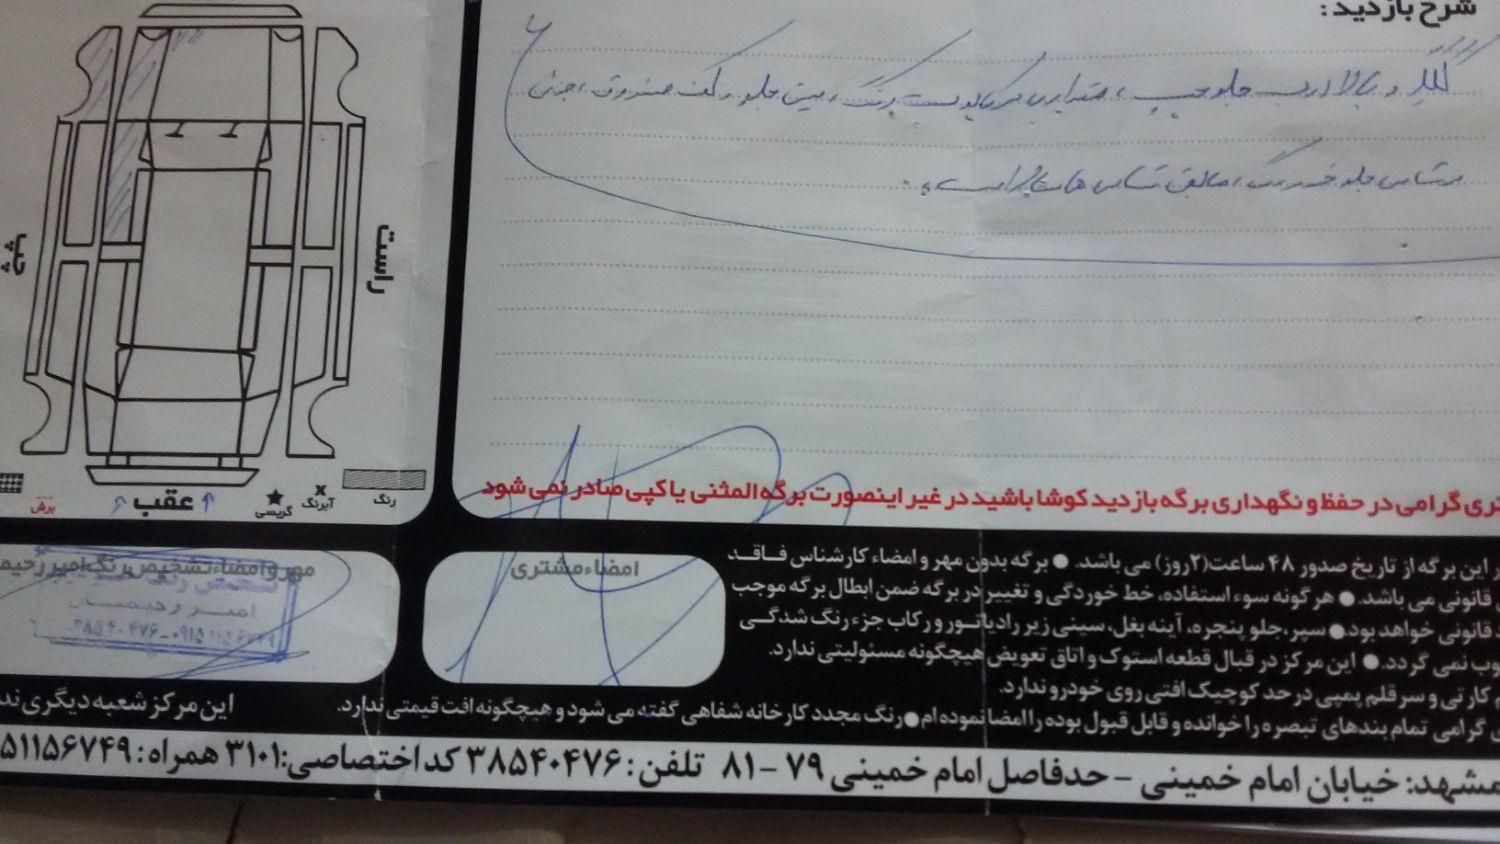 شرح بازدید:
گلگیر و بالا درب جلو چپ ، مقداری سرکاپوت سمت چپ رنگ، سینی جلو، کف صندوق، جزئی
سرشاسی جلو خوردگی، مابقی شاسی ها سالم است.
راست
چپ
عقب
رنگ
آبرنگ
گریسی
برش
تری گرامی در حفظ و نگهداری برگه بازدید کوشا باشید در غیر اینصورت برگه المثنی یا کپی صادر نمی شود
ر این برگه از تاریخ صدور ۴۸ ساعت(۲روز) می باشد. ● برگه بدون مهر و امضاء کارشناس فاقد
قانونی می باشد. ● هرگونه سوء استفاده، خط خوردگی و تغییر در برگه ضمن ابطال برگه موجب
قانونی خواهد بود ● سپر، جلو پنجره، آینه بغل، سینی زیر رادیاتور و رکاب جزء رنگ شدگی
وب نمی گردد. ● این مرکز در قبال قطعه استوک و اتاق تعویض هیچگونه مسئولیتی ندارد.
کارتی و سر قلم پمپی در حد کوچیک افتی روی خودرو ندارد.
گرامی تمام بندهای تبصره را خوانده و قابل قبول بوده را امضا نموده ام ● رنگ مجدد کارخانه شفاهی گفته می شود و هیچگونه افت قیمتی ندارد.
امضاء مشتری
مهر و امضاء تشخیص رنگ امیر رحیم
تشخیص رنگ
امیر رحیم
۳۸۵۴۰۴۷۶-۰۹۱۵۱۱۵۶۷۴۹
این مرکز شعبه دیگری ند
مشهد: خیابان امام خمینی - حدفاصل امام خمینی ۷۹ - ۸۱ تلفن: ۳۸۵۴۰۴۷۶ کد اختصاصی: ۳۱۰۱ همراه: ۵۱۱۵۶۷۴۹